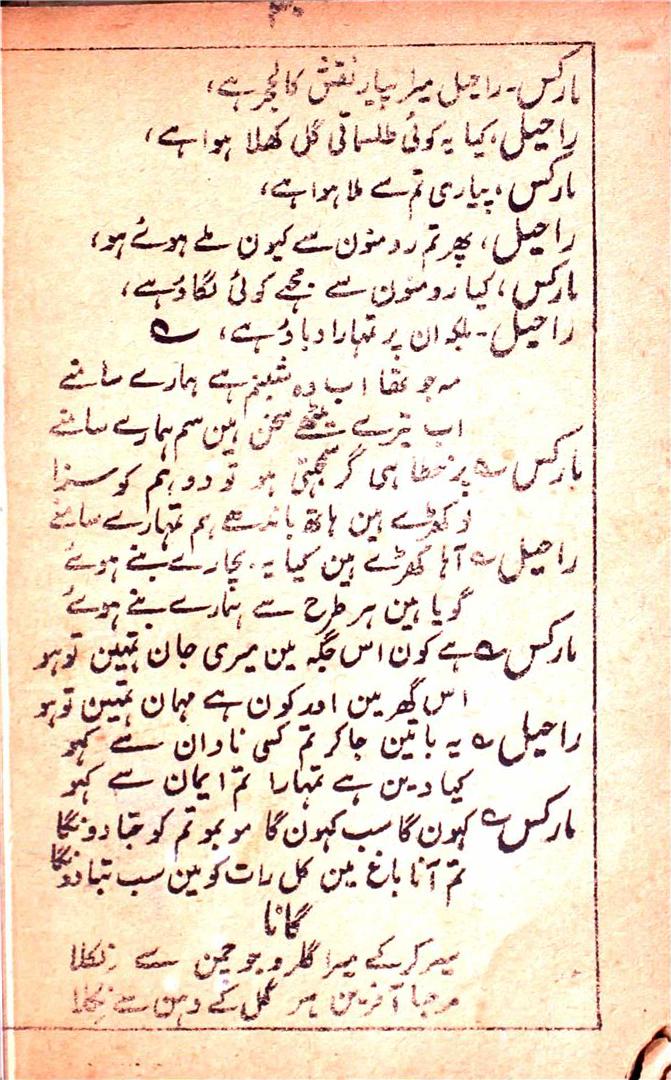 ۳۰
مارکس۔ راحیل میرا پیار نقش کالحجر ہے،
راحیل، کیا یہ کوئی طلسماتی گل کھلا ہوا ہے،
مارکس، پیاری تم سے ملا ہوا ہے،
راحیل، پھر تم رومنون سے کیون ملے ہوئے ہو،
مارکس، کیا رومنون سے مجھے کوئی لگاؤ ہے،
راحیل۔ بلکہ ان پر تمہارا دباؤ ہے، ؎
مہ جو تھا اب وہ شبنم ہے ہمارے سامنے
اب تیرے میٹھے سخن ہین سم ہمارے سامنے
مارکس ؎ پر خطا ہی گر سمجہتی ہو تو دو ہم کو سزا
لو کھڑے ہین ہاتھ باندھے ہم تمہارے سامنے
راحیل ؎ آہا کھڑے ہین کیا یہ بچارے بنے ہوئے
گویا ہین ہر طرح سے ہمارے بنے ہوئے
مارکس ؎ ہے کون اس جگہ مین میری جان تمہین تو ہو
اس گھر مین اور کون ہے مہمان تمہین تو ہو
راحیل ؎ یہ باتین جا کر تم کسی نادان سے کہو
کیا دین ہے تمہارا تم ایمان سے کہو
مارکس ؎ کہون گا سب کہون گا مو بمو تم کو جتا دونگا
تم آنا باغ مین کل رات کو مین سب بتا دونگا
گانا
سیر کر کے میرا گلرو جو چمن سے نکلا
مرحبا آفرین ہر گل کے دہن سے نکلا